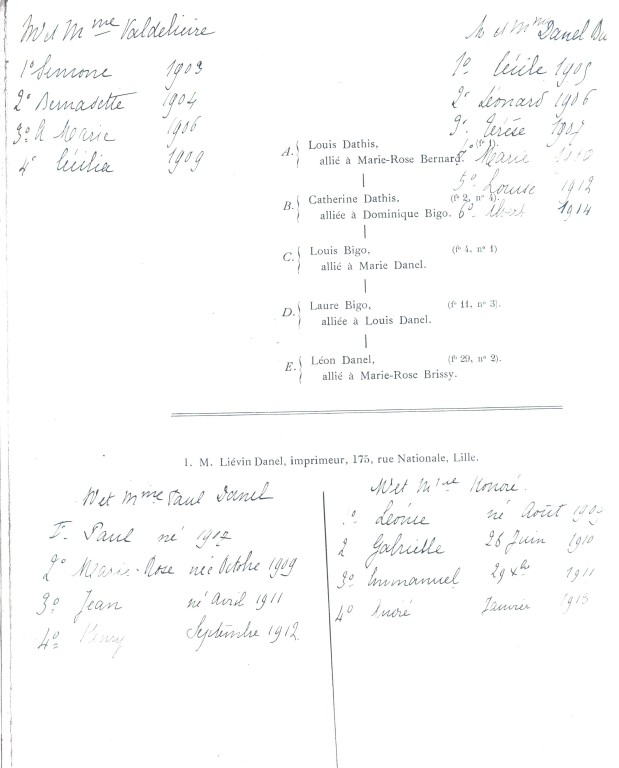 Mr et Mme Valdelieire
1º Simone 1903
2º Bernadette 1904
3º A Marie 1906
4º Cécilia 1909
M et Mme Danel Du
1º Cécile 1905
2º Léonard 1906
3º Térèse 1907
4º Marie 1910
5º Louise 1912
6º Albert 1914
A. Louis Dathis, (fº 1).
allié à Marie-Rose Bernard.
B. Catherine Dathis, (fº 2, nº 4).
alliée à Dominique Bigo.
C. Louis Bigo, (fº 4, nº 1)
allié à Marie Danel.
D. Laure Bigo, (fº 11, nº 3).
alliée à Louis Danel.
E. Léon Danel, (fº 29, nº 2).
allié à Marie-Rose Brissy.
1. M. Liévin Danel, imprimeur, 175, rue Nationale, Lille.
Mr et Mme Paul Danel
1. Paul né 1907
2º Marie-Rose née Octobre 1909
3º Jean né Avril 1911
4º Henry Septembre 1912
Mr et Mme Honoré
1º Léonie né Août 1909
2 Gabrielle 26 Juin 1910
3º Emmanuel 29 Xbre 1911
4º André Janvier 1913